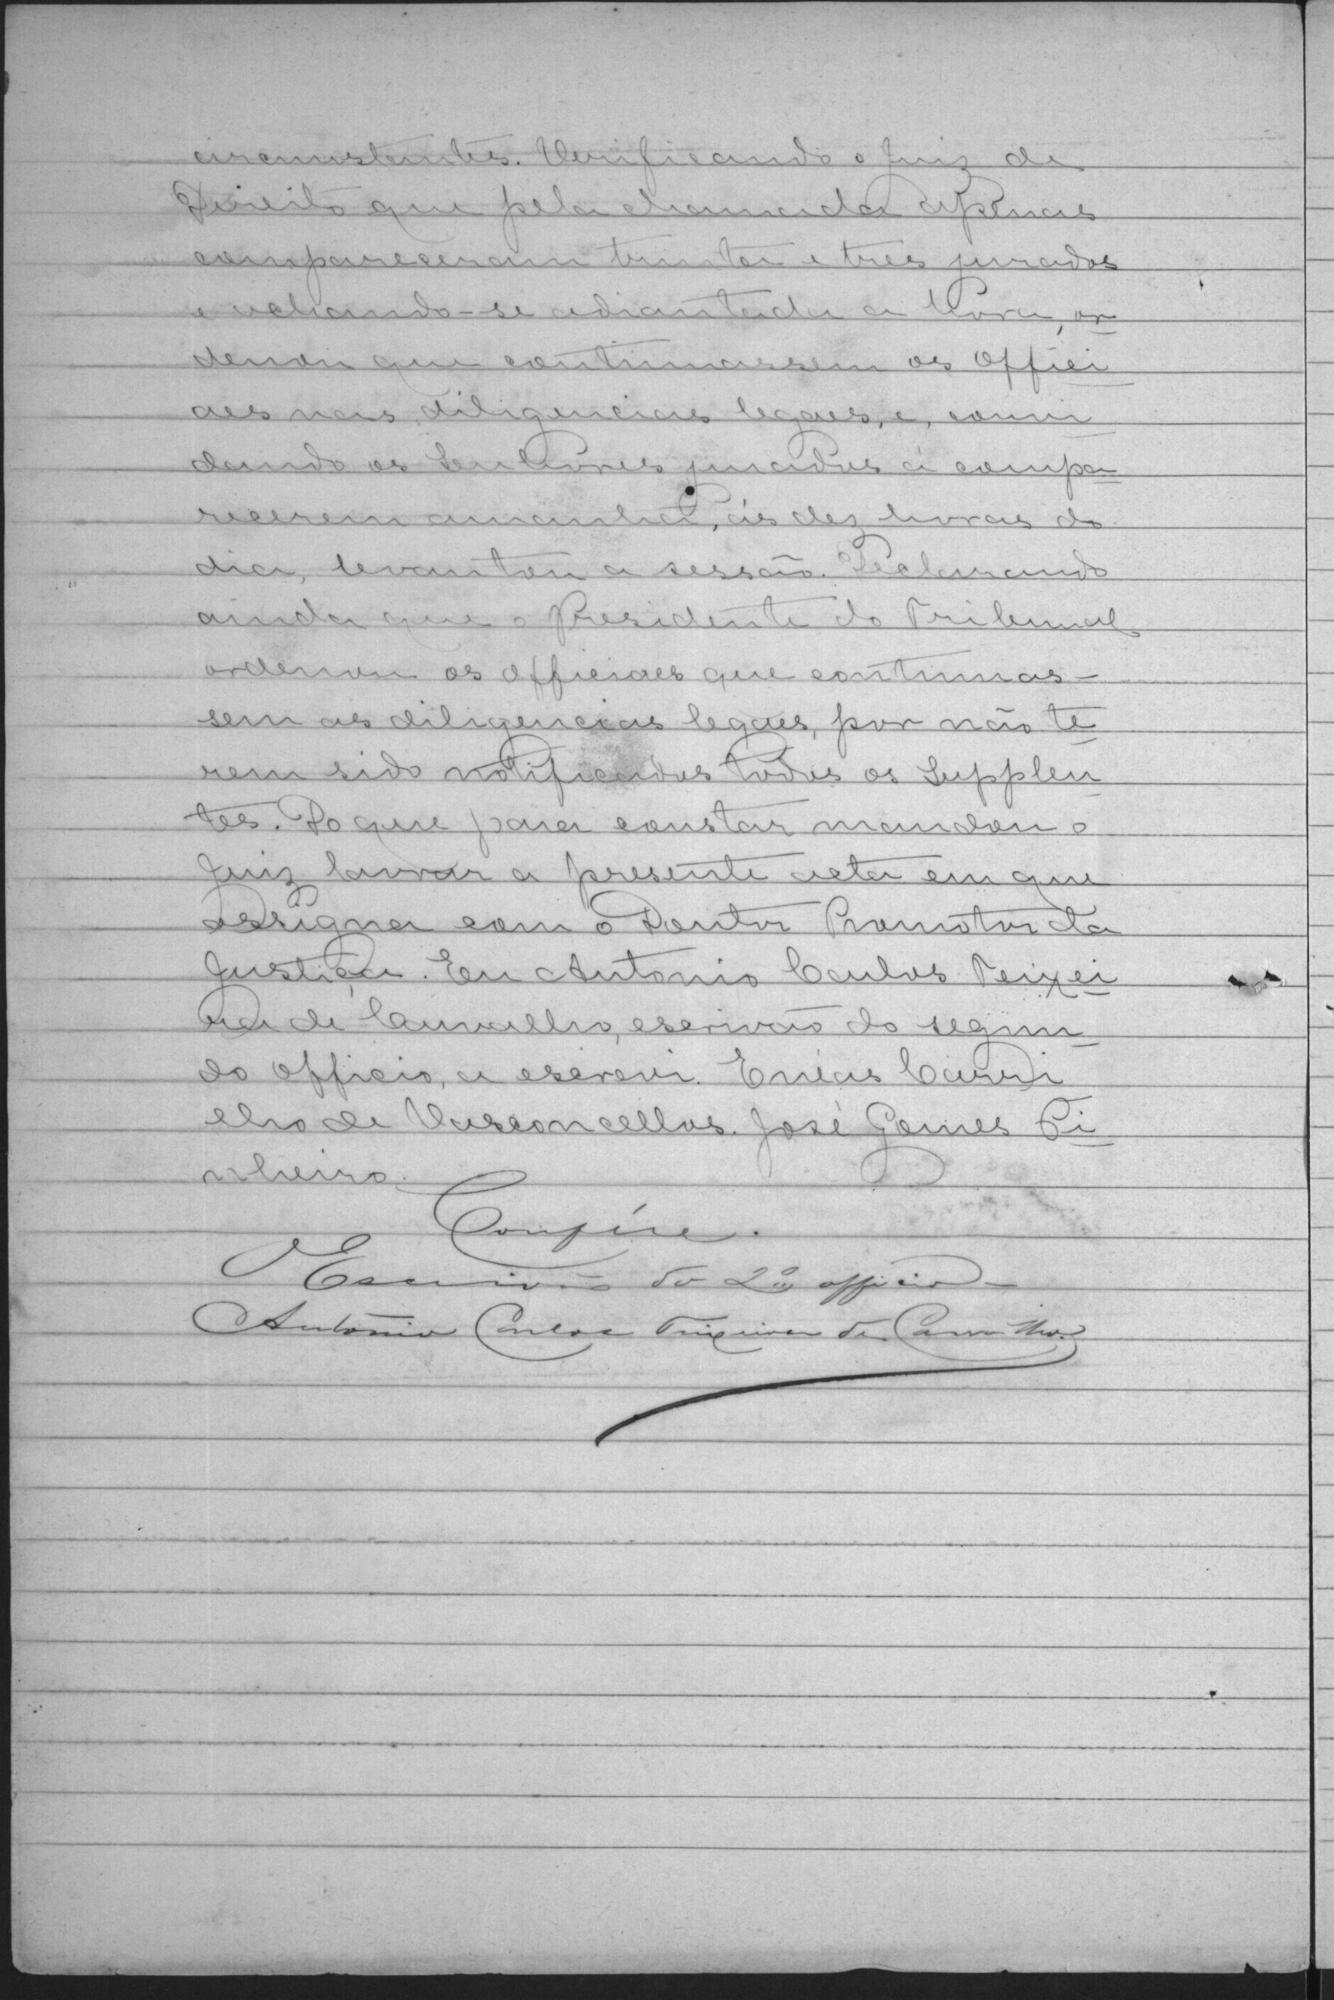 circumstantes. Verificando o Juiz de
Direito que pela chamada apenas
compareceram trinta e tres jurados
e achando-se adiantada a hora, or
denou que continuassem os offici
aes nas diligencias legaes, e, convi
dando os Senhores jurados á compa
recerem amanhã, ás dez horas do
dia, levantou a sessão. Declarando
ainda que o Presidente do Tribunal
ordenou os officiaes que continuas-
sem as diligencias legaes, por não te
rem sido notificados todos os Supplen
tes. Do que para constar mandou o
Juiz lavrar a presente acta em que
assigna com o Doutor Promotor da
Justiça. Eu Antonio Carlos Teixei
ra de Carvalho, escrivão do segun
do officio, a escrevi. Enéas Carri
lho de Vasconcellos. José Gomes Pi
nheiro.
Confére.
O Escrivão do 2º officio
Antonio Carlos Teixeira de Carvalho.